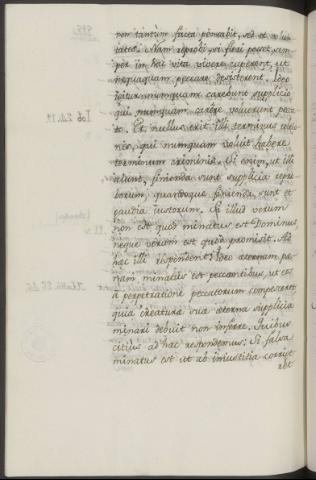 non tantum facta pensabit, sed et volun
tates. Nam reprobi, si fieri posset, sem
per in hac vita vivere cuperent, ut
nequaquam peccare desisterent. Ideo
igitur nunquam carebunt supplicio
qui nunquam carere voluerunt pecca
to. Et nullus erit illi terminus ultio
nis, qui nunquam valuit habere
terminum criminis. Si enim, ut illi
aiunt, finienda sunt supplicia repro
borum, quandoque finienda sunt et
gaudia iustorum. Si illud verum
non est quod minatus est Dominus,
neque verum est quod promisit. Ad
hæc illi respondent: Ideo æternam pæ
nam minatus est peccantibus, ut eos
a perpetratione peccatorum compesceret
quia creaturæ suæ æterna supplicia
minari debuit non inferre. Quibus
citius ad hæc respondemus: Si falsa
minatus est ut ab iniustitia corrige
ret